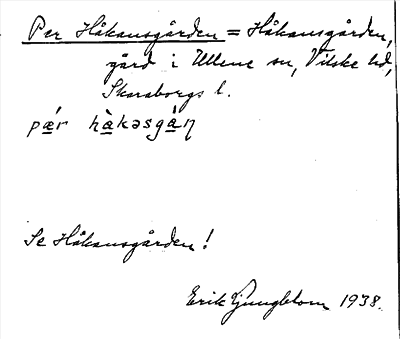 Per Håkansgården = Håkansgården,
gård i Ullene sn, Vilske hd,
Skaraborgs l.
pǽr hàkəsgàṇ
Se Håkansgården!
Erik Ljungblom 1938.